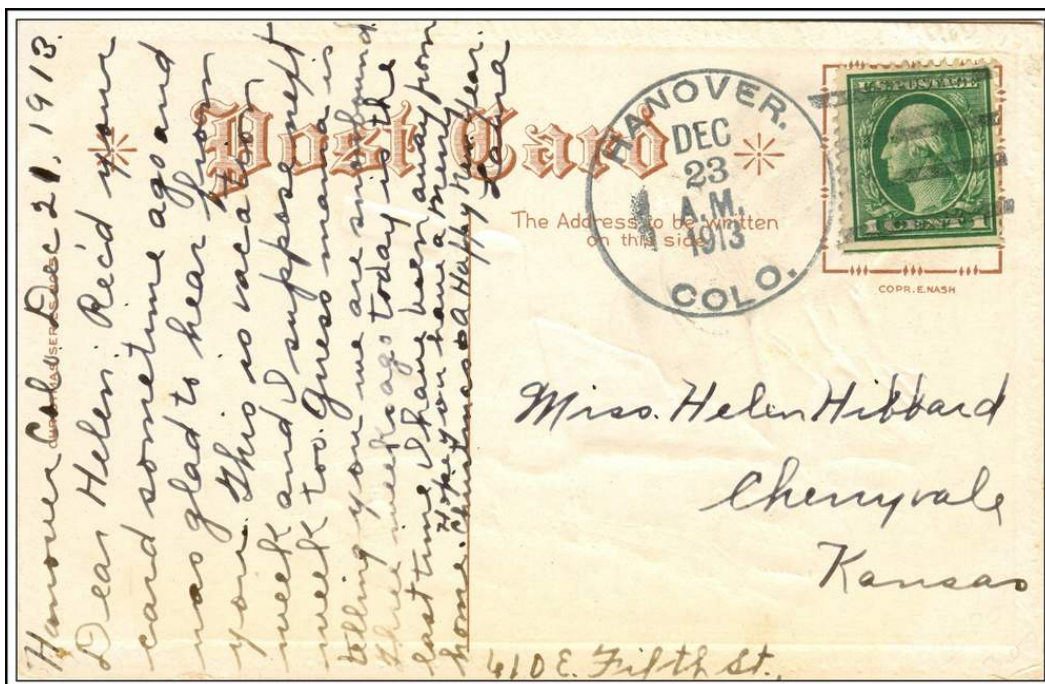 Hanover Colo. Dec 21, 1913.
Dear Helen: Rec'd your
card sometime ago and
was glad to hear from
you. This is vacation
week and I suppose next
week too. Guess mama is
telling you we are snowbound
three weeks ago today is the
last time I have been away from
home. Hope you have a merry
Christmas & a Happy New Year.
Laura
Post Card
The Address to be written
on this side
HANOVER.
DEC
23
A.M.
1913
COLO.
U.S. POSTAGE
1 CENT 1
COPR. E. NASH
CHRISTMAS SERIES NO.
Miss. Helen Hibbard
Cherryvale
Kansas
410 E. Fifth St.,